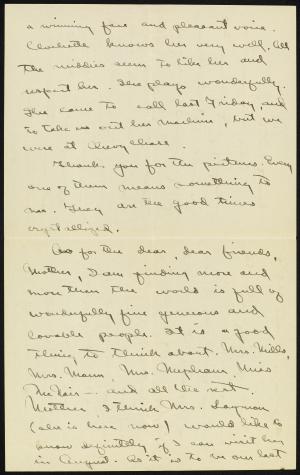 a winning face and pleasant voice.
Charlotte knows her very well. All
the middies seem to like her and
respect her. She plays wonderfully.
She came to call last Friday, and
to take us out her machine, but we
were at Chevy Chase.
Thank you for the pictures. Every
one of them means something to
me. They are the good times
crystallized.
As for the dear, dear friends,
Mother, I am finding more and
more that the world is full of
wonderfully fine generous and
lovable people. It is a good
thing to think about. Mrs. Mills,
Mrs. Mann, Mrs. Miss
and all the rest.
Mother, I think Mrs.
(who is here now) would like to
know definitely if I can visit her
in August. As it is to be our last